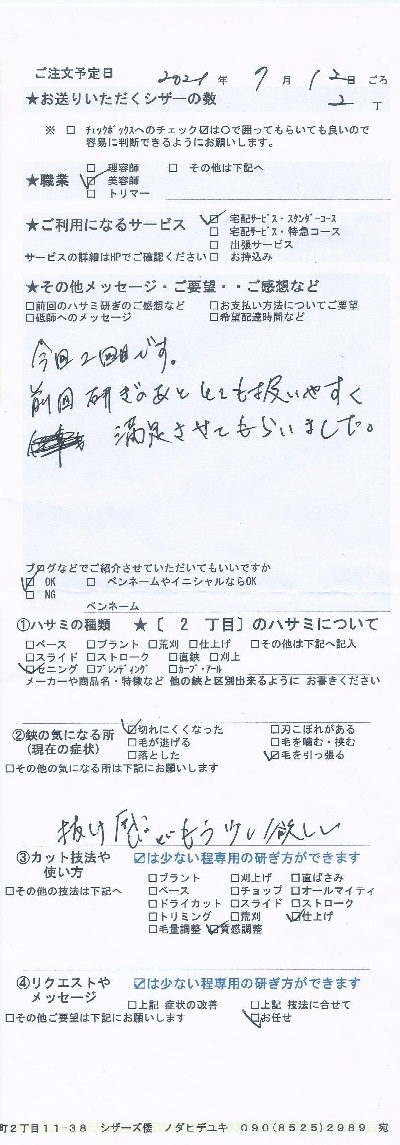 ご注文予定日 2021年 7月 12日ごろ
★お送りいただくシザーの数 2 丁
※ □ ﾁｪｯｸﾎﾞｯｸｽへのチェック☑は○で囲ってもらいても良いので
容易に判断できるようにお願いします。
□ 理容師 □ その他は下記へ
★職業 ☑ 美容師
□ トリマー
★ご利用になるサービス ☑ 宅配ｻｰﾋﾞｽ・ｽﾀﾝﾀﾞｰｺｰｽ
□ 宅配ｻｰﾋﾞｽ・特急コース
□ 出張サービス
サービスの詳細はHPでご確認ください □ お持込み
★その他メッセージ・ご要望・・ご感想など
□前回のハサミ研ぎのご感想など □お支払い方法についてご要望
□砥師へのメッセージ □希望配達時間など
今回2回目です。
前回 研ぎのあと とても扱いやすく
満足させてもらいました。
ブログなどでご紹介させていただいてもいいですか
☑ OK □ ペンネームやイニシャルならOK
□ NG
ペンネーム
①ハサミの種類 ★〔 2 丁目〕のハサミについて
□ベース □ブラント □荒刈 □仕上げ □その他は下記へ記入
□スライド □ストローク □直鋏 □刈上
☑セニング □ﾌﾞﾚﾝﾃﾞｨﾝｸﾞ □ｶｰﾌﾞ・ｱｰﾙ
メーカーや商品名・特徴など 他の鋏と区別出来るように お書きください
②鋏の気になる所 ☑切れにくくなった □刃こぼれがある
(現在の症状) □毛が逃げる □毛を噛む・挟む
□落とした ☑毛を引っ張る
□その他の気になる所は下記にお願いします
抜け感がもう少し欲しい
③カット技法や ☑は少ない程専用の研ぎ方ができます
使い方 □ブラント □刈上げ □直ばさみ
□その他の技法は下記へ □ベース □チョップ □オールマイティ
□ドライカット □スライド □ストローク
□トリミング □荒刈 ☑仕上げ
□毛量調整 ☑質感調整
④リクエストや ☑は少ない程専用の研ぎ方ができます
メッセージ □上記 症状の改善 □上記 技法に合せて
□その他ご要望は下記にお願いします ☑お任せ
町2丁目11-38 シザーズ倭 ノダヒデユキ 090(8525)2989 宛